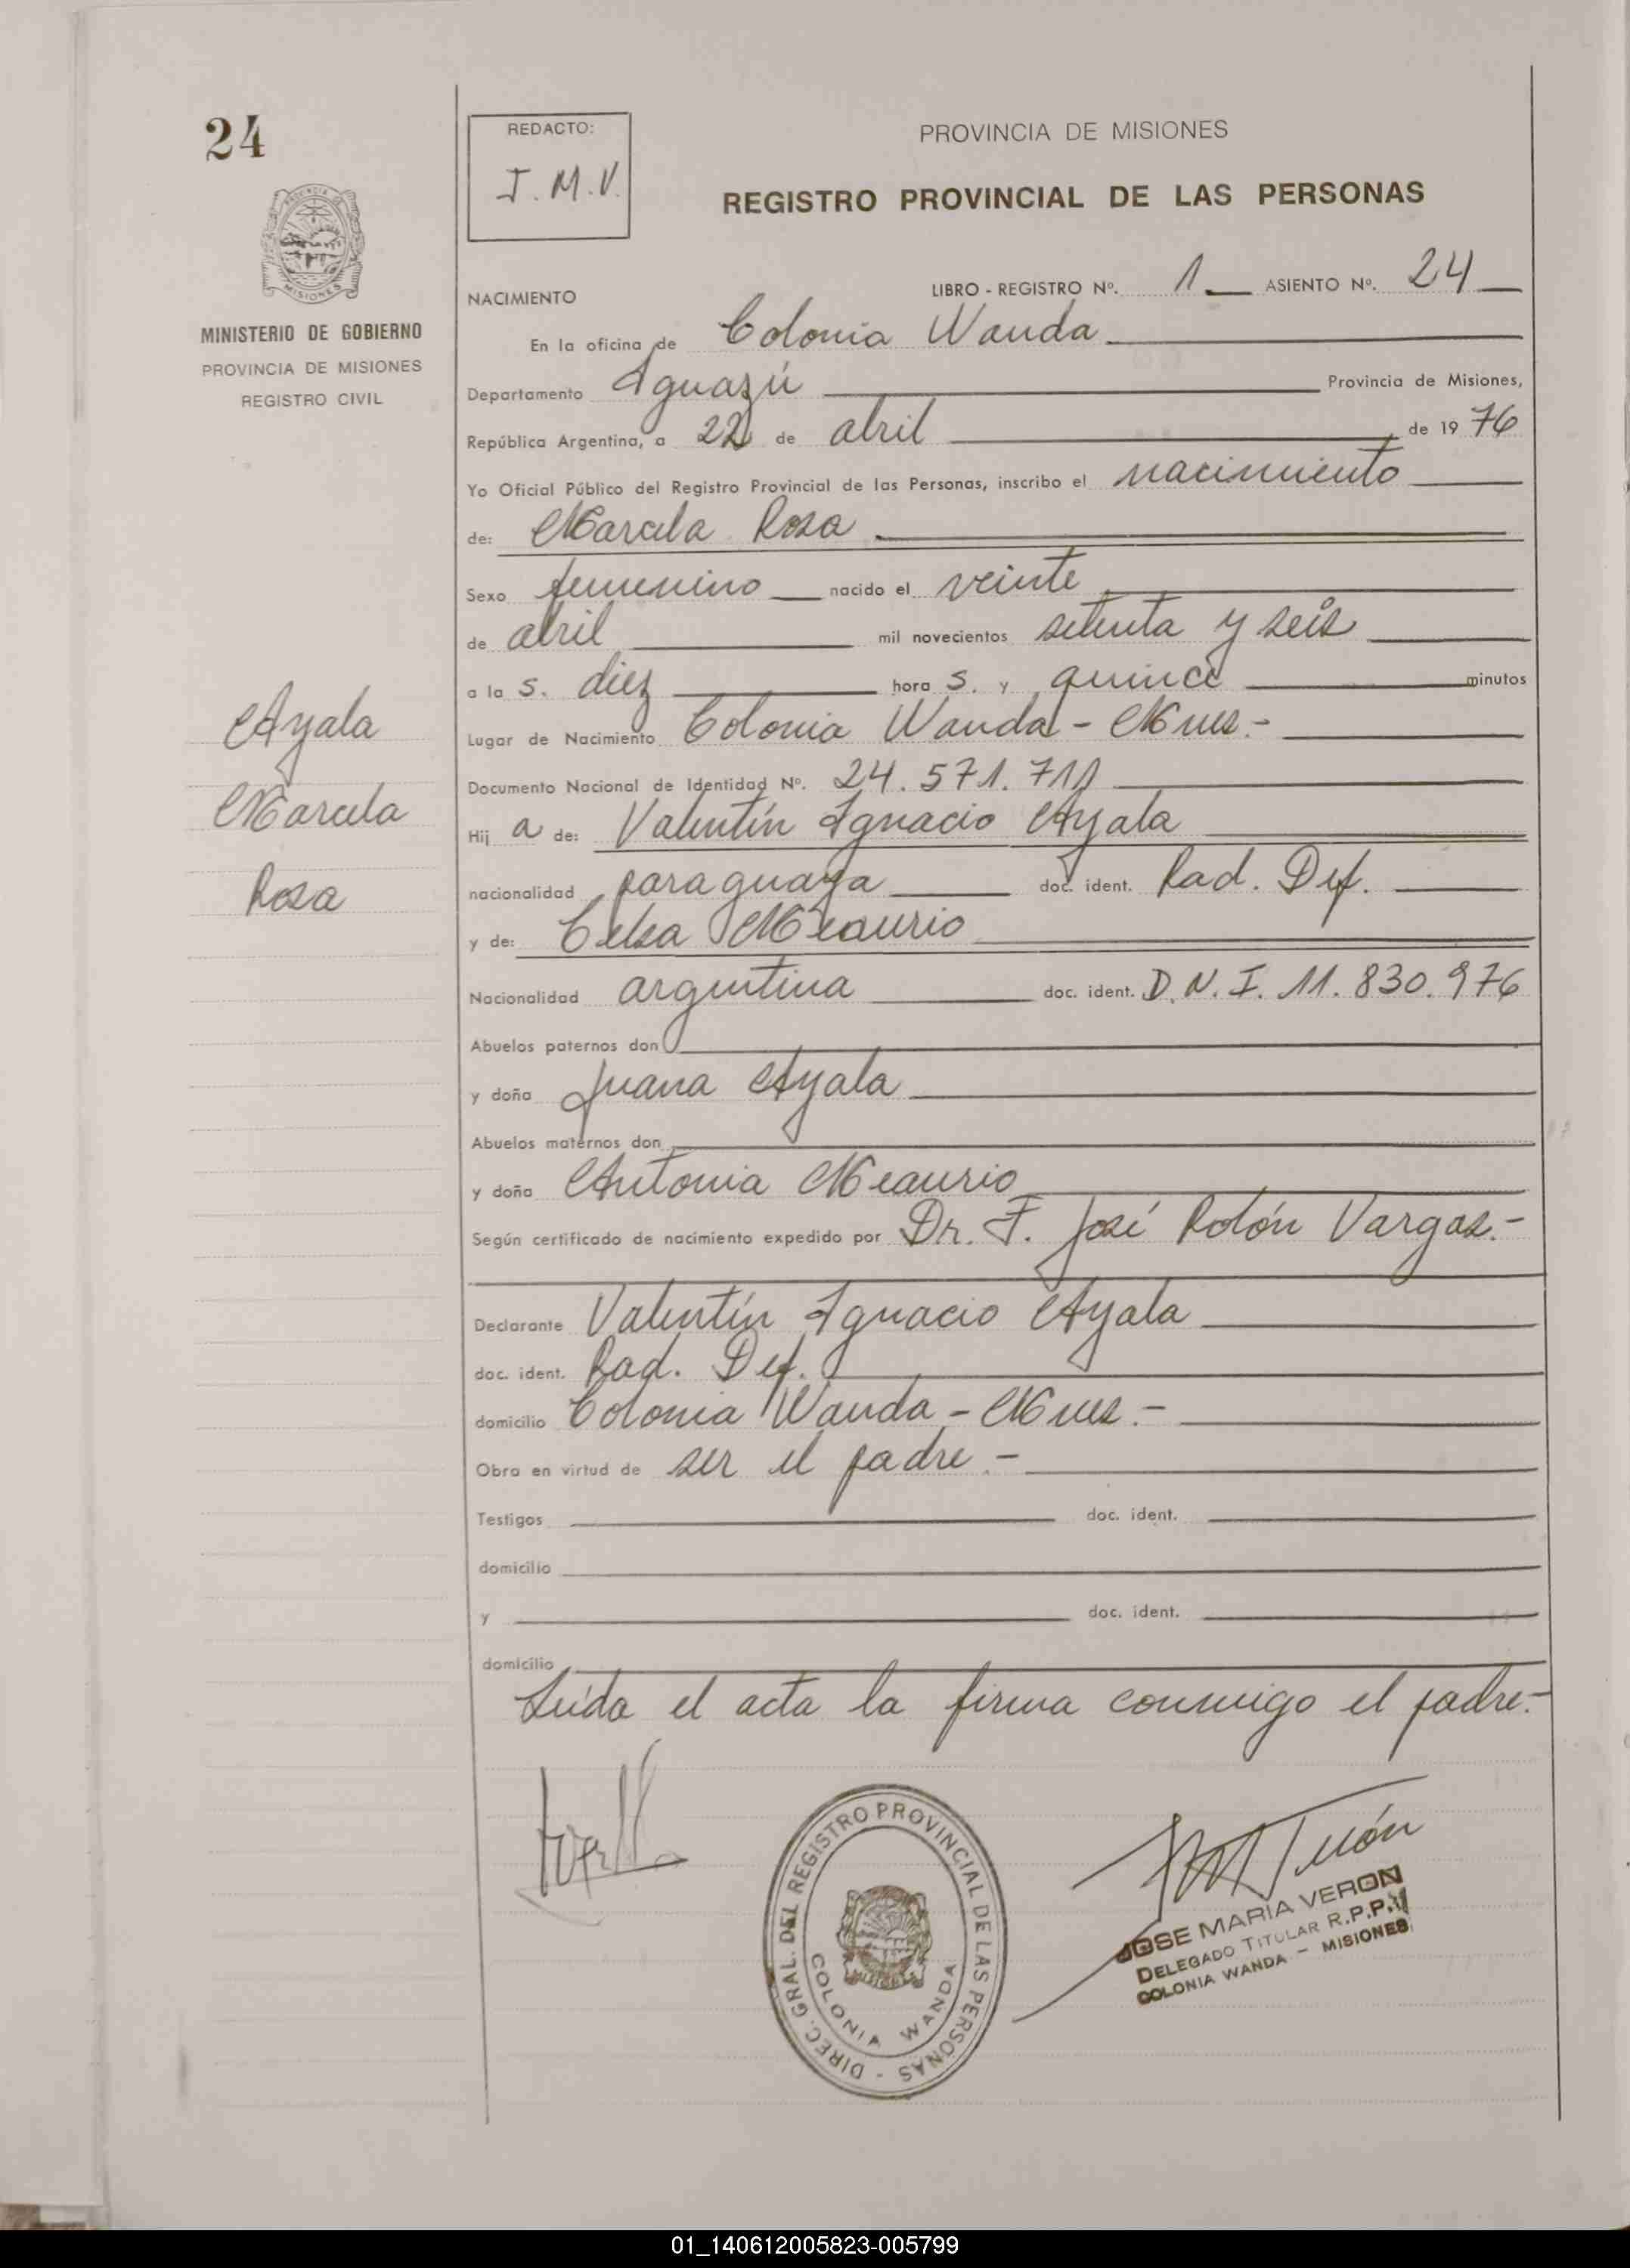 24
REDACTO:
J. M. V.
PROVINCIA DE MISIONES
REGISTRO PROVINCIAL DE LAS PERSONAS
MINISTERIO DE GOBIERNO
PROVINCIA DE MISIONES
REGISTRO CIVIL
NACIMIENTO
LIBRO - REGISTRO Nº. 1 ASIENTO Nº. 24
En la oficina de Colonia Wanda
Departamento Iguazú Provincia de Misiones,
República Argentina, a 22 de abril de 1976
Yo Oficial Público del Registro Provincial de las Personas, inscribo el nacimiento
de: Marcela Rosa
Sexo femenino nacido el veinte
de abril mil novecientos setenta y seis
a la s. diez hora s. y quince minutos
Lugar de Nacimiento Colonia Wanda - Mnes.-
Documento Nacional de Identidad Nº. 24.571.711
Hij a de: Valentín Ignacio Ayala
nacionalidad paraguaya doc. ident. Rad. Def.
y de: Celsa Meaurio
Nacionalidad argentina doc. ident. D.N.I. 11.830.976
Abuelos paternos don
y doña Juana Ayala
Abuelos maternos don
y doña Antonia Meaurio
Según certificado de nacimiento expedido por Dr. F. José Rolón Vargas.-
Declarante Valentín Ignacio Ayala
doc. ident. Rad. Def.
domicilio Colonia Wanda - Mnes.-
Obra en virtud de ser el padre.-
Testigos doc. ident.
domicilio
y doc. ident.
domicilio
Leida el acta la firma conmigo el padre.-
Ayala
Marcela
Rosa
DIREC. GRAL. DEL REGISTRO PROVINCIAL DE LAS PERSONAS -
COLONIA WANDA
JOSE MARIA VERON
DELEGADO TITULAR R.P.P.
COLONIA WANDA - MISIONES
01_140612005823-005799